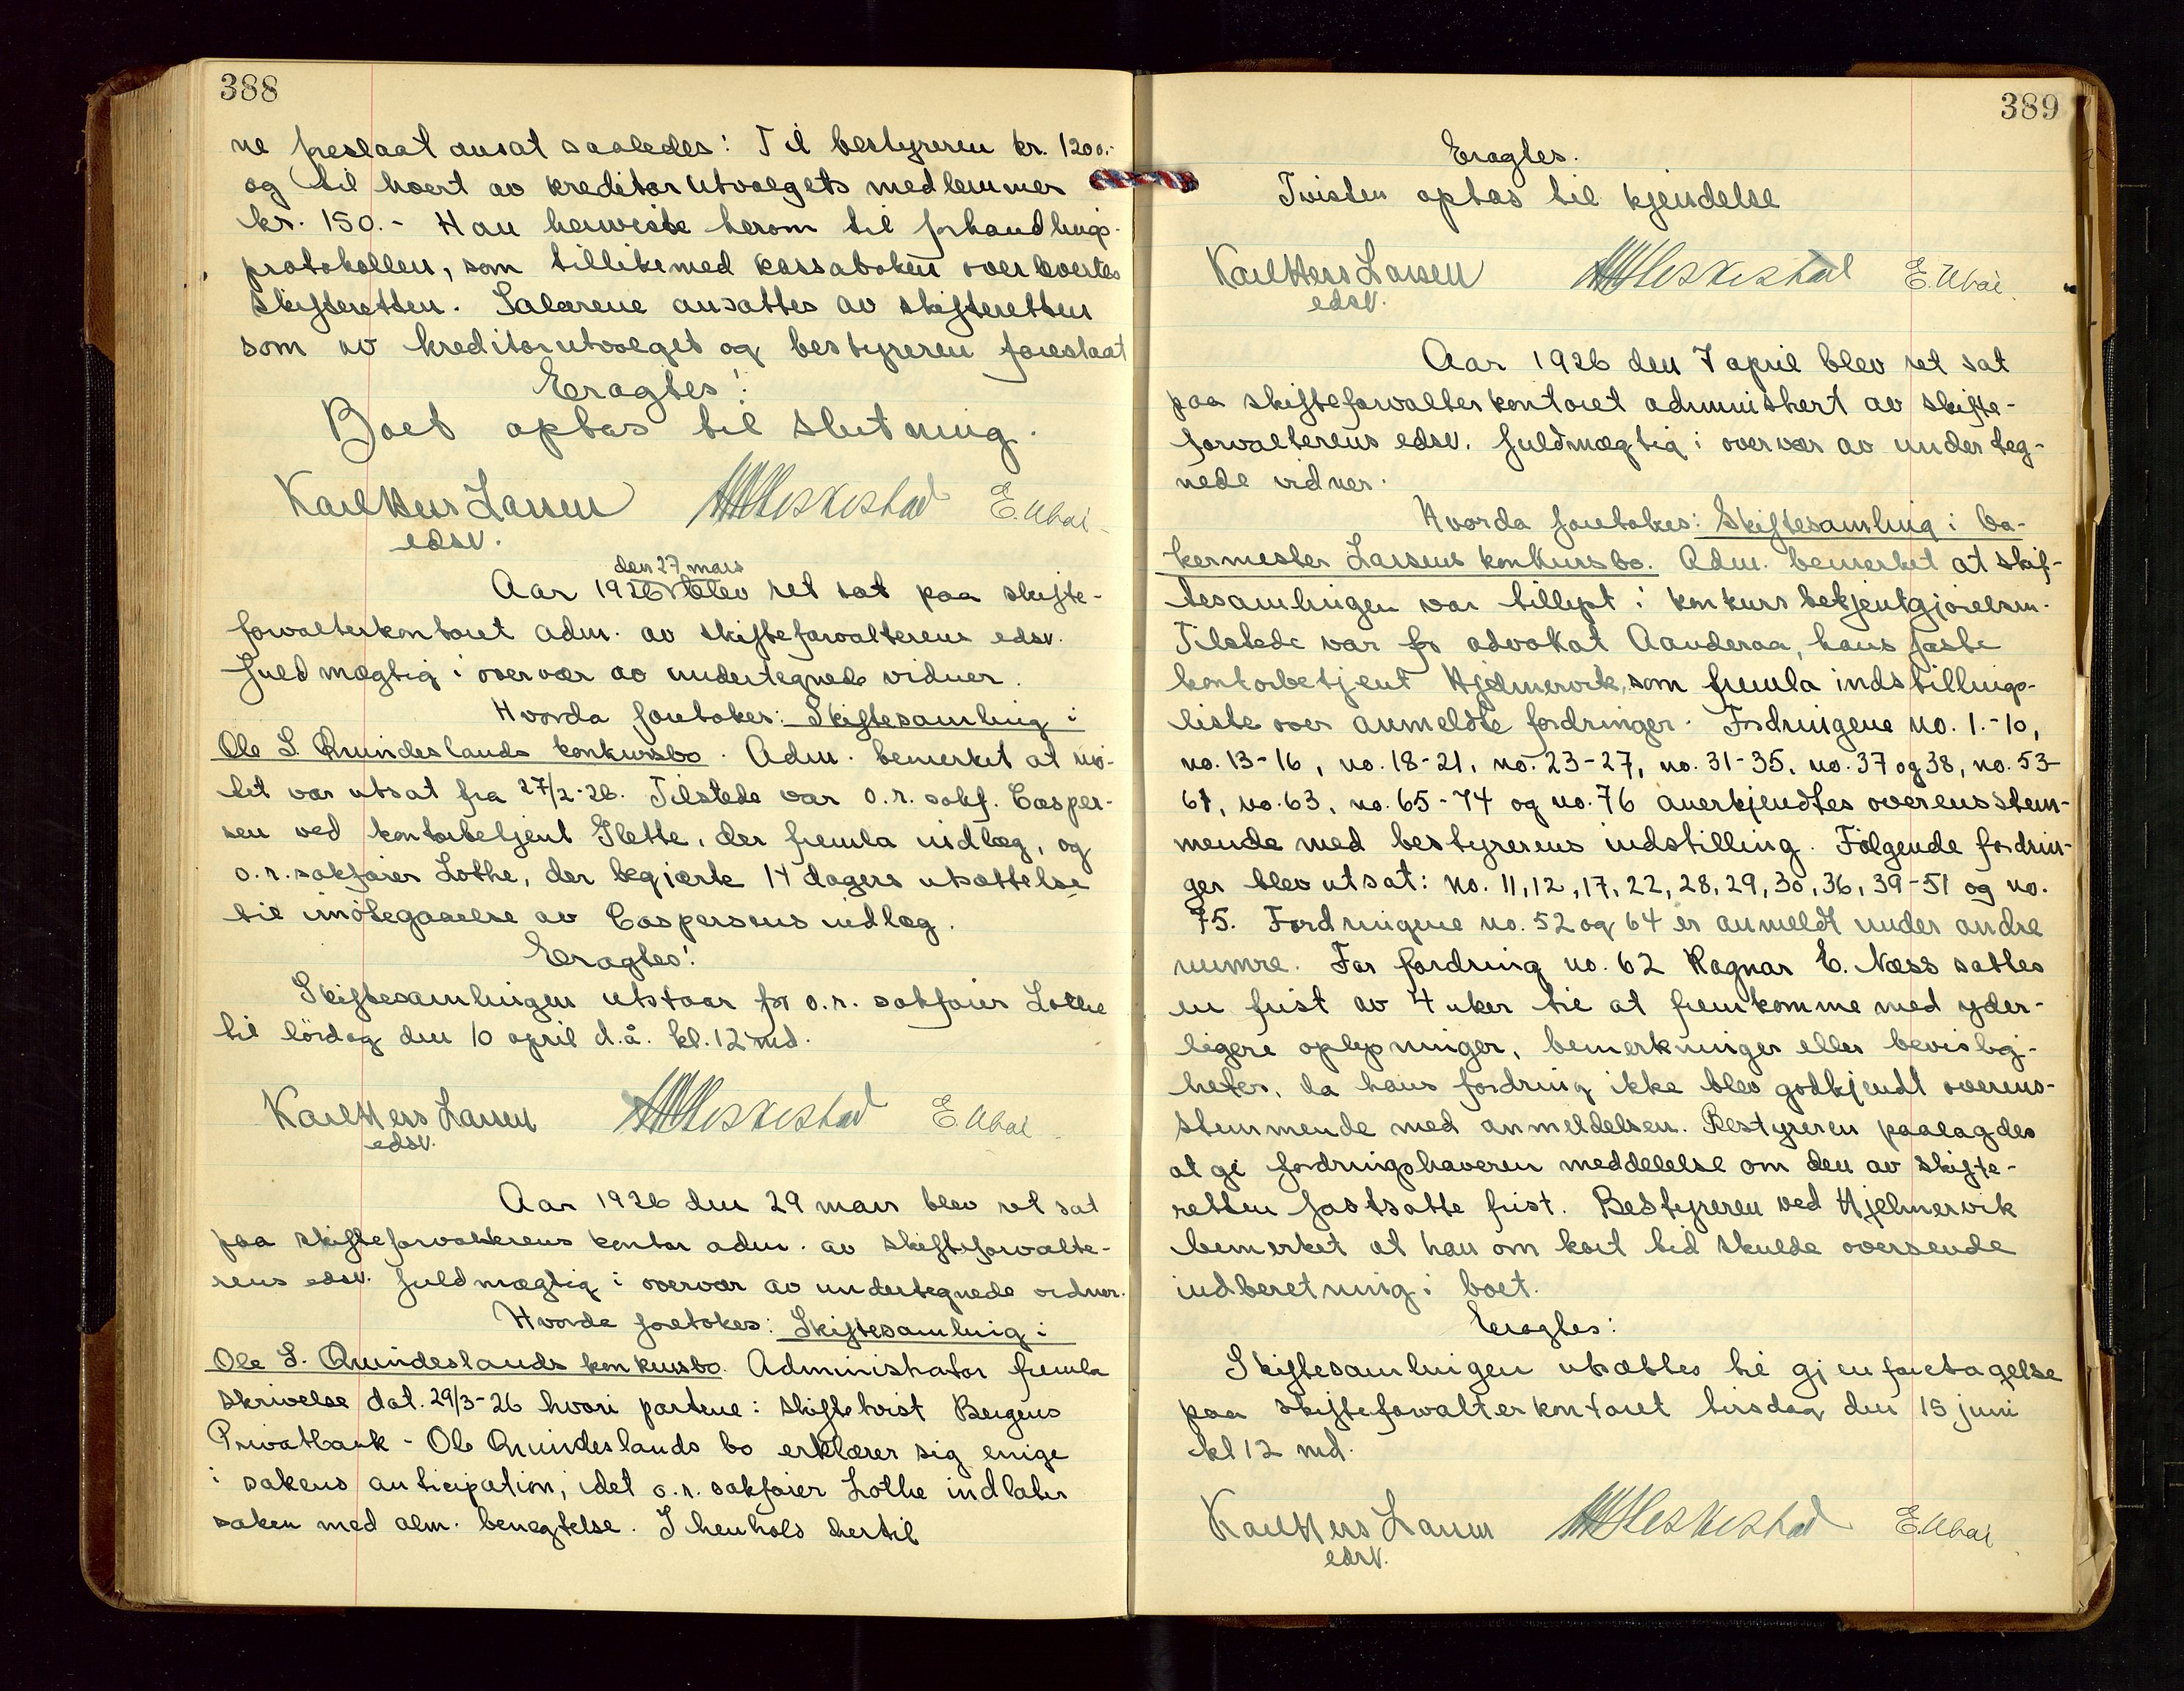 388
ne freslaat ansat saaledes: Til bestyreren kr. 1200.-
og til hvert av kreditorutvalgets medlemmer
kr. 150.- Han henviste herom til forhandlings-
protokollen, som tillikemed kassaboken overlevertes
skifteretten. Salærene ansattes av skifteretten
som av kreditorutvalget og bestyreren foreslaat
Eragtes:
Boet optas til slutning.
Karl Hers Larsen E. Ubøe
edsv.
den 27 mars
Aar 1926 blev ret sat paa skifte-
forvalterkontoret adm. av skifteforvalterens edsv.
fuldmægtig i overvær av undertegnede vidner.
Hvorda foretokes: Skiftesamling i
Ole L. Qvindeslands konkursbo. Adm. bemerket at mö-
tet var utsat fra 27/2-26. Tilstede var o.r. sakf. Casper-
sen ved kontorbetjent Flette, der fremla indlæg, og
o.r. sakförer Lothe, der begjærte 14 dagers utsættelse
til imötegaaelse av Caspersens indlæg.
Eragtes:
Skiftesamlingen utstaar for o.r. sakförer Lothe
til lördag den 10 april d.å. kl. 12 md.
Karl Hers Larsen E. Ubøe
edsv.
Aar 1926 den 29 mars blev ret sat
paa skifteforvalterens kontor adm. av skifteforvalte-
rens edsv. fuldmægtig i overvær av undertegnede vidner.
Hvorda foretokes: Skiftesamling i
Ole L. Qvindeslands konkursbo. Administrator fremla
skrivelse dat. 29/3-26 hvori partene i skiftetvist Bergens
Privatbank - Ole Qvindeslands bo erklærer sig enige
i sakens anticipation, idet o.r. sakförer Lothe indlater
saken med alm. benegtelse. I henhold hertil
389
Eragtes.
Tvisten optas til kjendelse
Karl Hers Larsen E. Ubøe
edsv.
Aar 1926 den 7 april blev ret sat
paa skifteforvalterkontoret administrert av skifte-
forvalterens edsv. fuldmægtig i overvær av underteg-
nede vidner.
Hvorda foretokes: Skiftesamling i ba-
kermester Larsens konkursbo. Adm. bemerket at skif-
tesamlingen var tillyst i konkursbekjentgjörelsen.
Tilstede var for advokat Aanderaa, hans faste
kontorbetjent Hjelmervik, som fremla indstillings-
liste over anmeldte fordringer. Fordringene no. 1.-10,
no. 13-16, no. 18-21, no. 23-27, no. 31-35, no. 37 og 38, no. 53-
61, no. 63, no. 65-74 og no. 76 anerkjendtes overensstem-
mende med bestyrerens indstilling. Fölgende fordrin-
ger blev utsat: no. 11, 12, 17, 22, 28, 29, 30, 36, 39-51 og no.
75. Fordringene no. 52 og 64 er anmeldt under andre
numre. For fordring no. 62 Ragnar E. Næss sattes
en frist av 4 uker til at fremkomme med yder-
ligere oplysninger, bemerkninger eller bevislig-
heter, da hans fordring ikke blev godkjendt overens-
stemmende med anmeldelsen. Bestyreren paalagdes
at gi fordringshaveren meddelelse om den av skifte-
retten fastsatte frist. Bestyreren ved Hjelmervik
bemerket at han om kort tid skulde oversende
indberetning i boet.
Eragtes:
Skiftesamlingen utsættes til gjenforetagelse
paa skifteforvalterkontoret tirsdag den 15 juni
kl 12 md.
Karl Hers Larsen E. Ubøe
edsv.